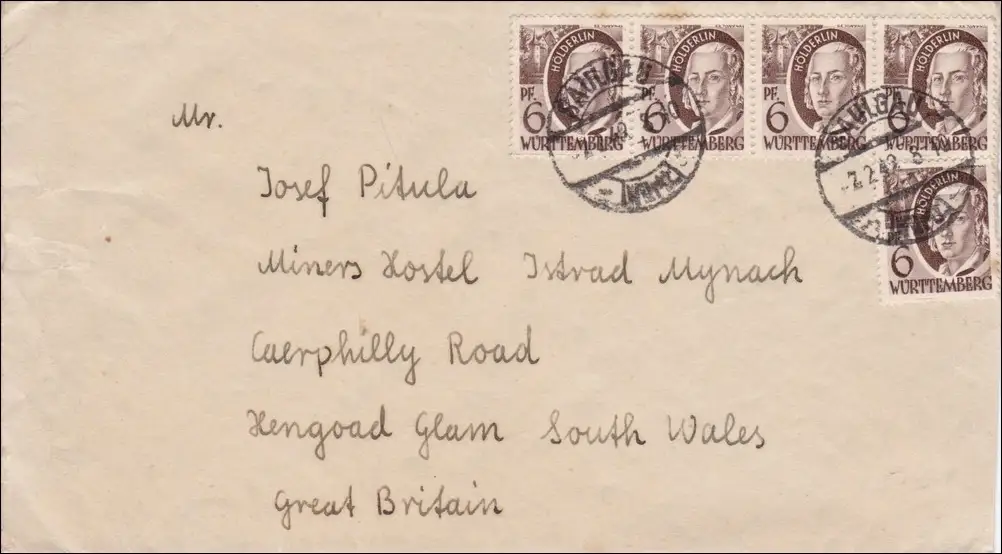 HÖLDERLIN HÖLDERLIN HÖLDERLIN HÖLDERLIN
PF. PF. PF. PF.
6 6 6 6
WÜRTTEMBERG WÜRTTEMBERG WÜRTTEMBERG WÜRTTEMBERG
SAULGAU
SAULGAU
-7.2.49.-8
HÖLDERLIN
6
WÜRTTEMBERG
Mr.
Josef Pitula
Miners Hostel Istrad Mynach
Caerphilly Road
Hengoad Glam South Wales
Great Britain